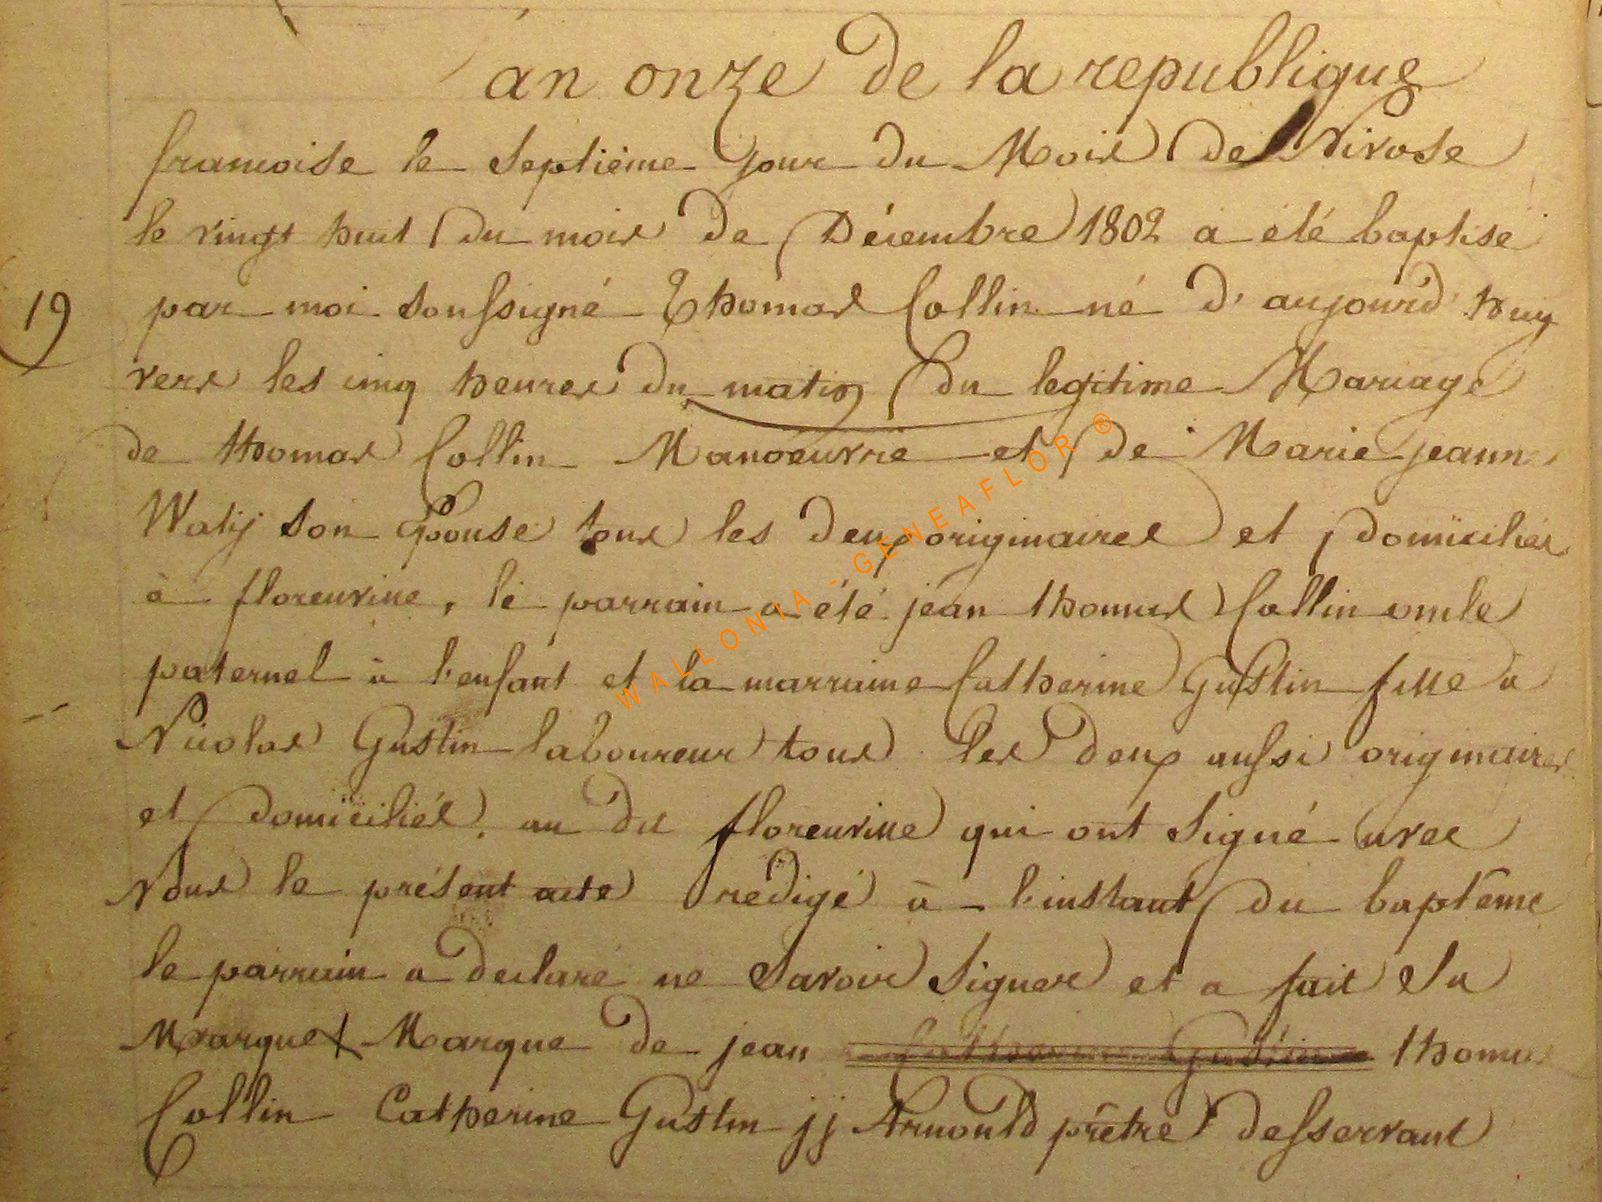 án onze de la republique
francoise le septiéme jour du Mois de Nivose
le vingt huit du mois de Décembre 1802 a été baptisé
19
par moi soussigné Thomas Collin né d'aujourd'huy
vers les cinq heures du matin du legitime Mariage
de thomas Collin Manoeuvrie et de Marie jeanne
Watij son Epouse tous les deux originaires et domiciliés
à florenville, le parrain a été jean thomas Collin oncle
paternel à l'enfant et la marraine Catherine Gustin fille à
Nicolas Gustin laboureur tous les deux aussi originaires
et domiciliés au dit florenville qui ont signé avec
Nous le présent acte rédigé à l'instant du baptême
le parrain a declaré ne savoir signer et a fait sa
Marque + Marque de jean Catherine Gustin thomas
Collin Catherine Gustin jj Arnould prêtre desservant
WALLONIA - GENEAFLOR ®